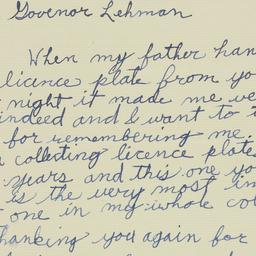 Govenor Lehman
When my father han
licence plate from yo
night it made me ve
indeed and I want to t
for remembering me.
collecting licence plates
years and this one yo
is the very most im
one in my whole col
hanking you again for